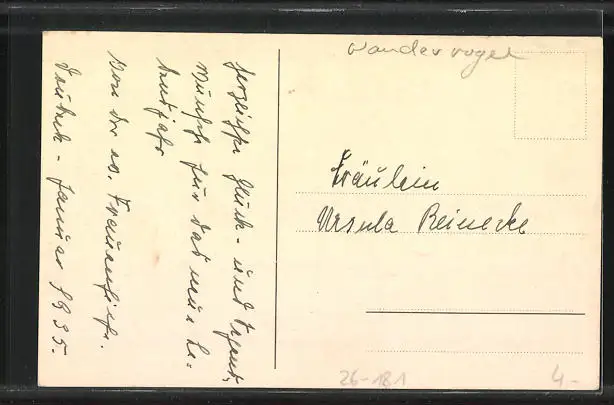 Wandervogel
Herzliche Glück- und Segens-
wünsche für das neue Le-
bensjahr
von der ev. Frauenhilfe.
- Januar 1935.
Fräulein
Ursula Reinecke
26-181
4-